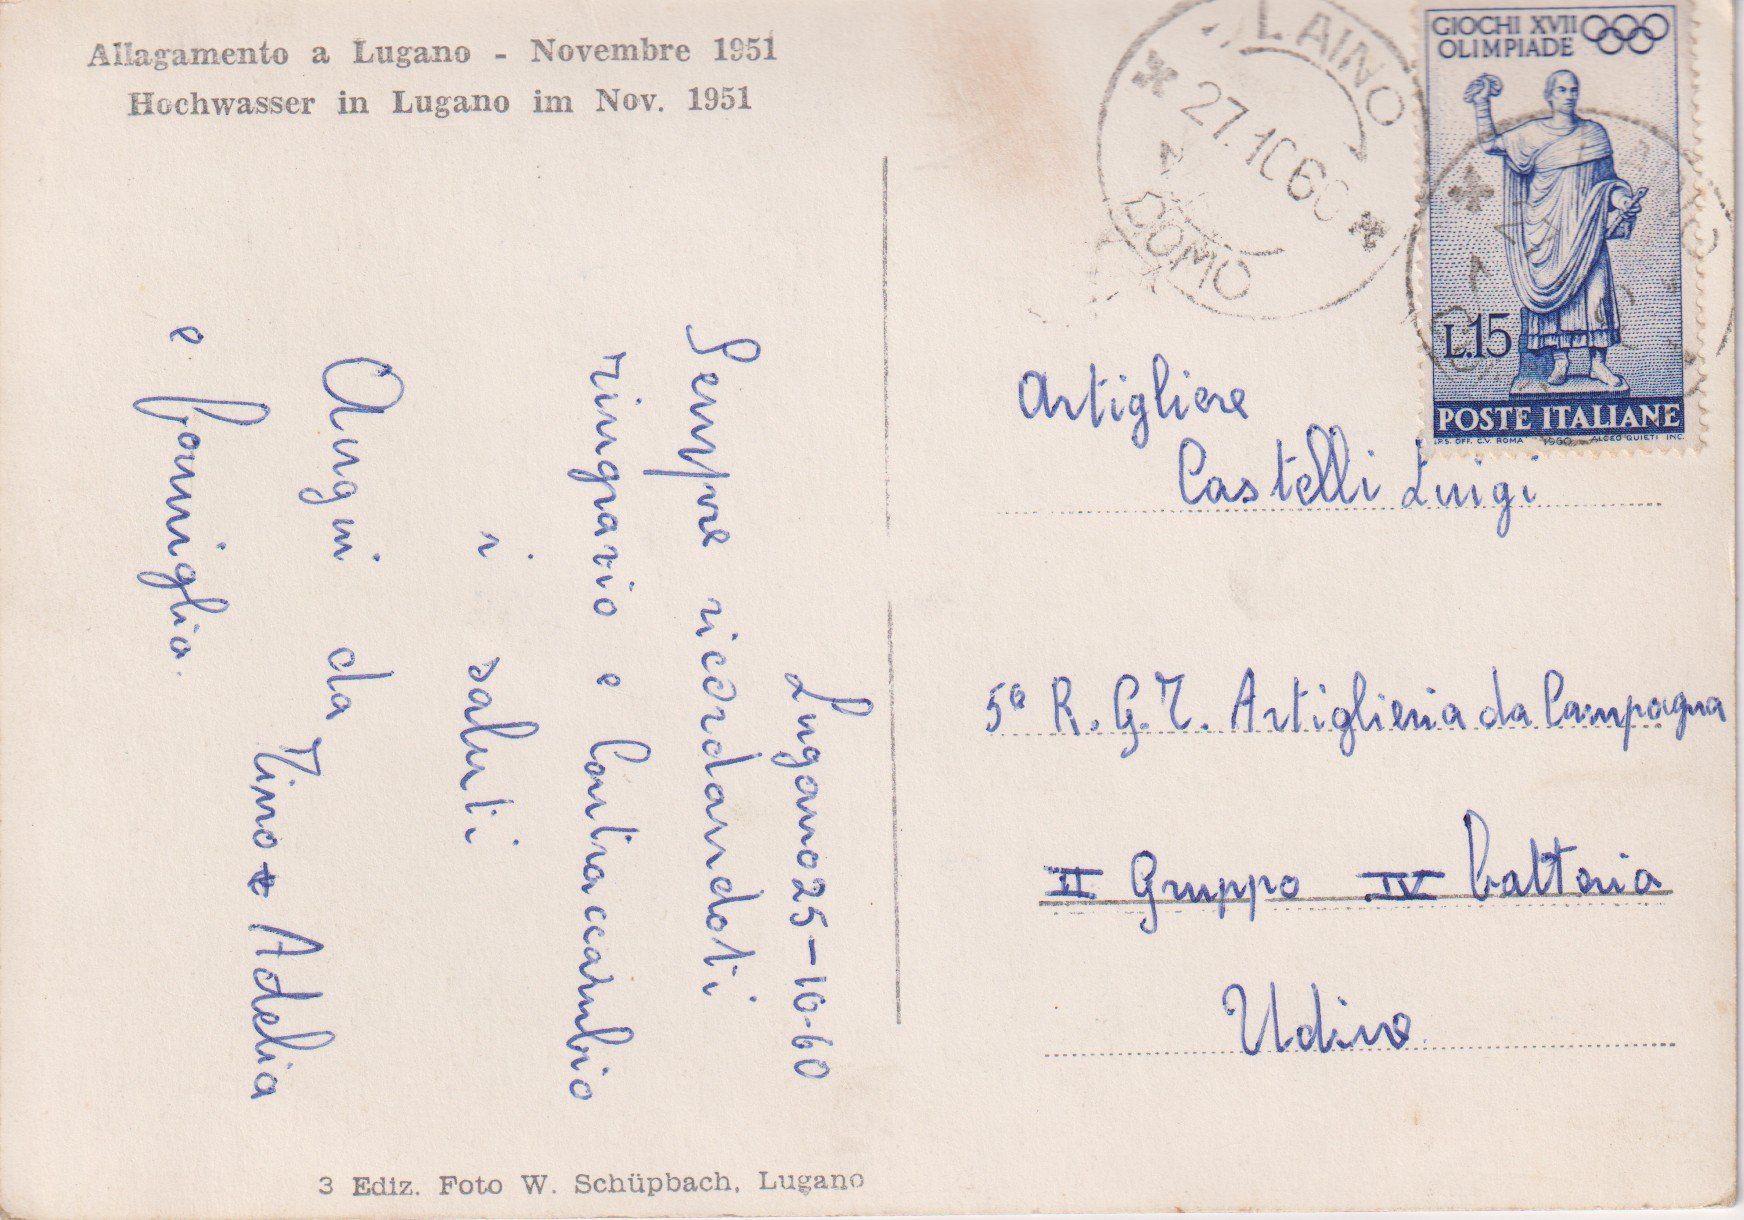 Allagamento a Lugano - Novembre 1951
Hochwasser in Lugano im Nov. 1951
Lugano 25-10-60
Sempre ricordandoti
ringrazio e Contraccambio
i saluti
Auguri da Tino e Adelia
e famiglia.
3 Ediz. Foto W. Schüpbach, Lugano
LAINO
27.10 60
COMO
GIOCHI XVII
OLIMPIADE
L.15
POSTE ITALIANE
I.P.S. OFF. C.V. ROMA 1960 ALCEO QUIETI INC.
Artigliere
Castelli Luigi
5° R.G.T. Artiglieria da Campagna
II Gruppo IV batteria
Udine